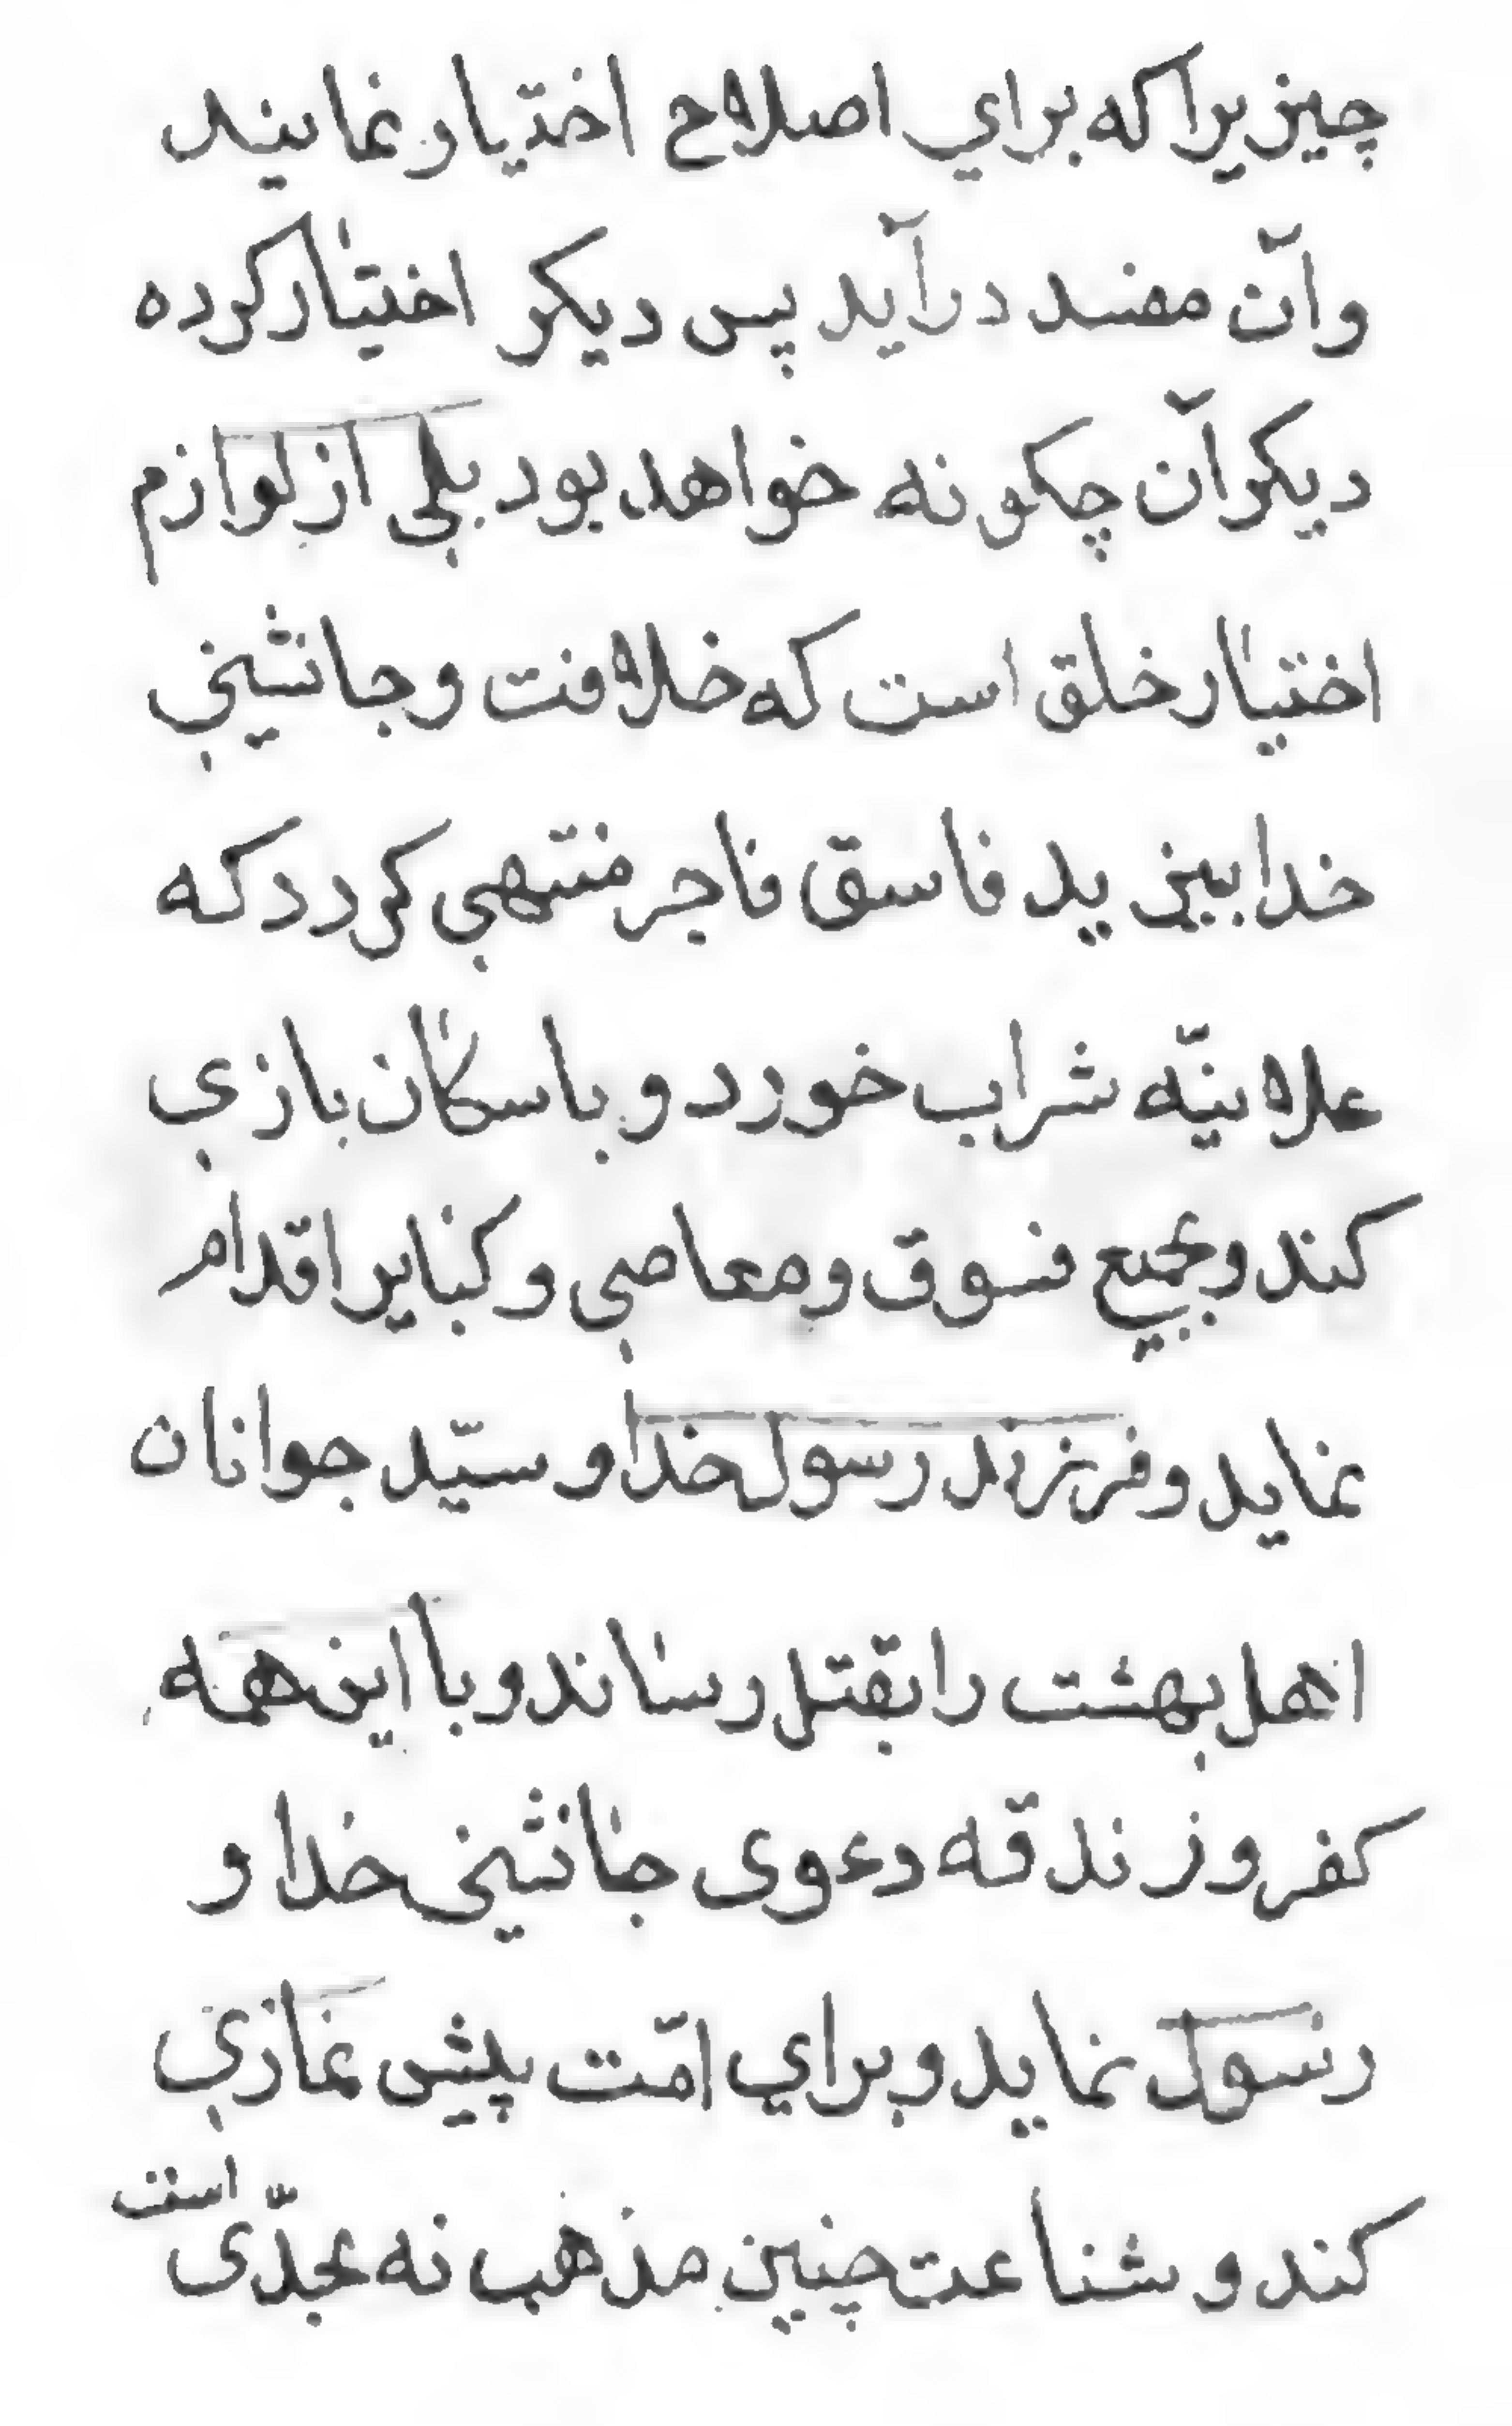 چیزیرا که برای اصلاح اختیار نمایند
وآن مفسد درآید پس دیکر اختیار کرده
دیکر آن چکونه خواهد بود بلی از لوازم
اختیار خلق است که خلافت و جانشینی
خدا بیزید فاسق فاجر منتهی کردد که
علانیّه شراب خورد و با سکان بازی
کند و بجمیع فسوق و معاصی و کبایر اقدام
نماید و فرزند رسول خدا و سیّد جوانان
اهل بهشت را بقتل رساند و با این همه
کفر و زندقه دعوی جانشینی خدا و
رسول نماید و برای امّت پیش نمازی
کند و شناعت چنین مذهب نه بحدّی است